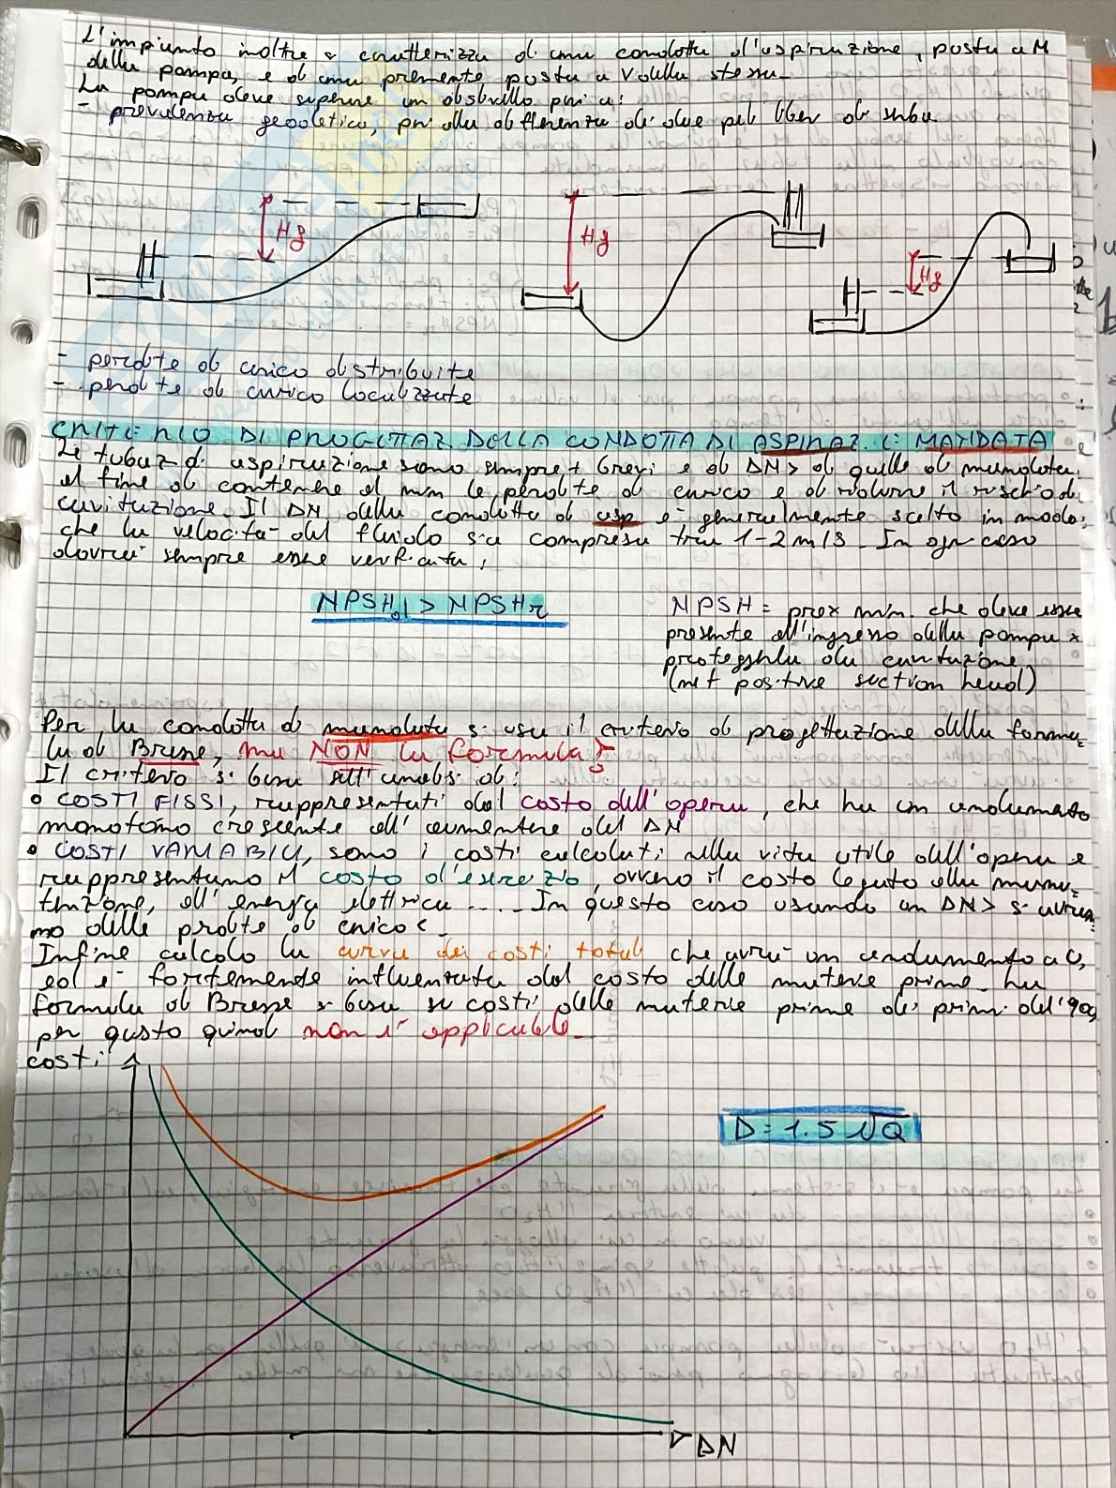 L'impianto inoltre è caratterizza di una condotta d'aspirazione, posta a M
della pompa, e di una premente posta a V della stessa.
La pompa deve superare un ostacolo pari a:
- prevalenza geodetica, pari alla differenza di due peli liberi di
Hg
Hg
Hg
- perdite di carico distribuite
- perdite di carico localizzate
CRITERIO DI PROGETTAZ. DELLA CONDOTTA DI ASPIRAZ. E MANDATA
Le tubaz di aspirazione sono sempre + brevi e di DN > di quelle di mandata,
al fine di contenere al min le perdite di carico e di ridurre il rischio di
cavitazione. Il DN della condotta di asp è generalmente scelto in modo
che la velocità del fluido sia compresa tra 1-2 m/s. In ogni caso
dovrà sempre essere verificata:
NPSHd > NPSHr
NPSH = prex min. che deve essere
presente all'ingresso della pompa x
proteggerla da cavitazione
(net positive suction head)
Per la condotta di mandata si usa il criterio di progettazione della formu=
la di Bresse, ma NON la formula!
Il criterio si basa sull'analisi di:
o COSTI FISSI, rappresentati dal costo dell'opera, che ha un andamento
monotono crescente all'aumentare del DN
• COSTI VARIABILI, sono i costi calcolati nella vita utile dell'opera e
rappresentano il costo d'esercizio, ovvero il costo legato alla manu=
tenzione, all'energia elettrica .... In questo caso usando un DN > si avran
no delle perdite di carico <.
Infine calcolo la curva dei costi totali che avrà un andamento a U,
ed è fortemente influenzata dal costo delle materie prime. La
formula di Bresse si basa su costi delle materie prime dei primi del '900,
per questo quindi non è applicabile.
costi
D = 1.5 √Q
DN